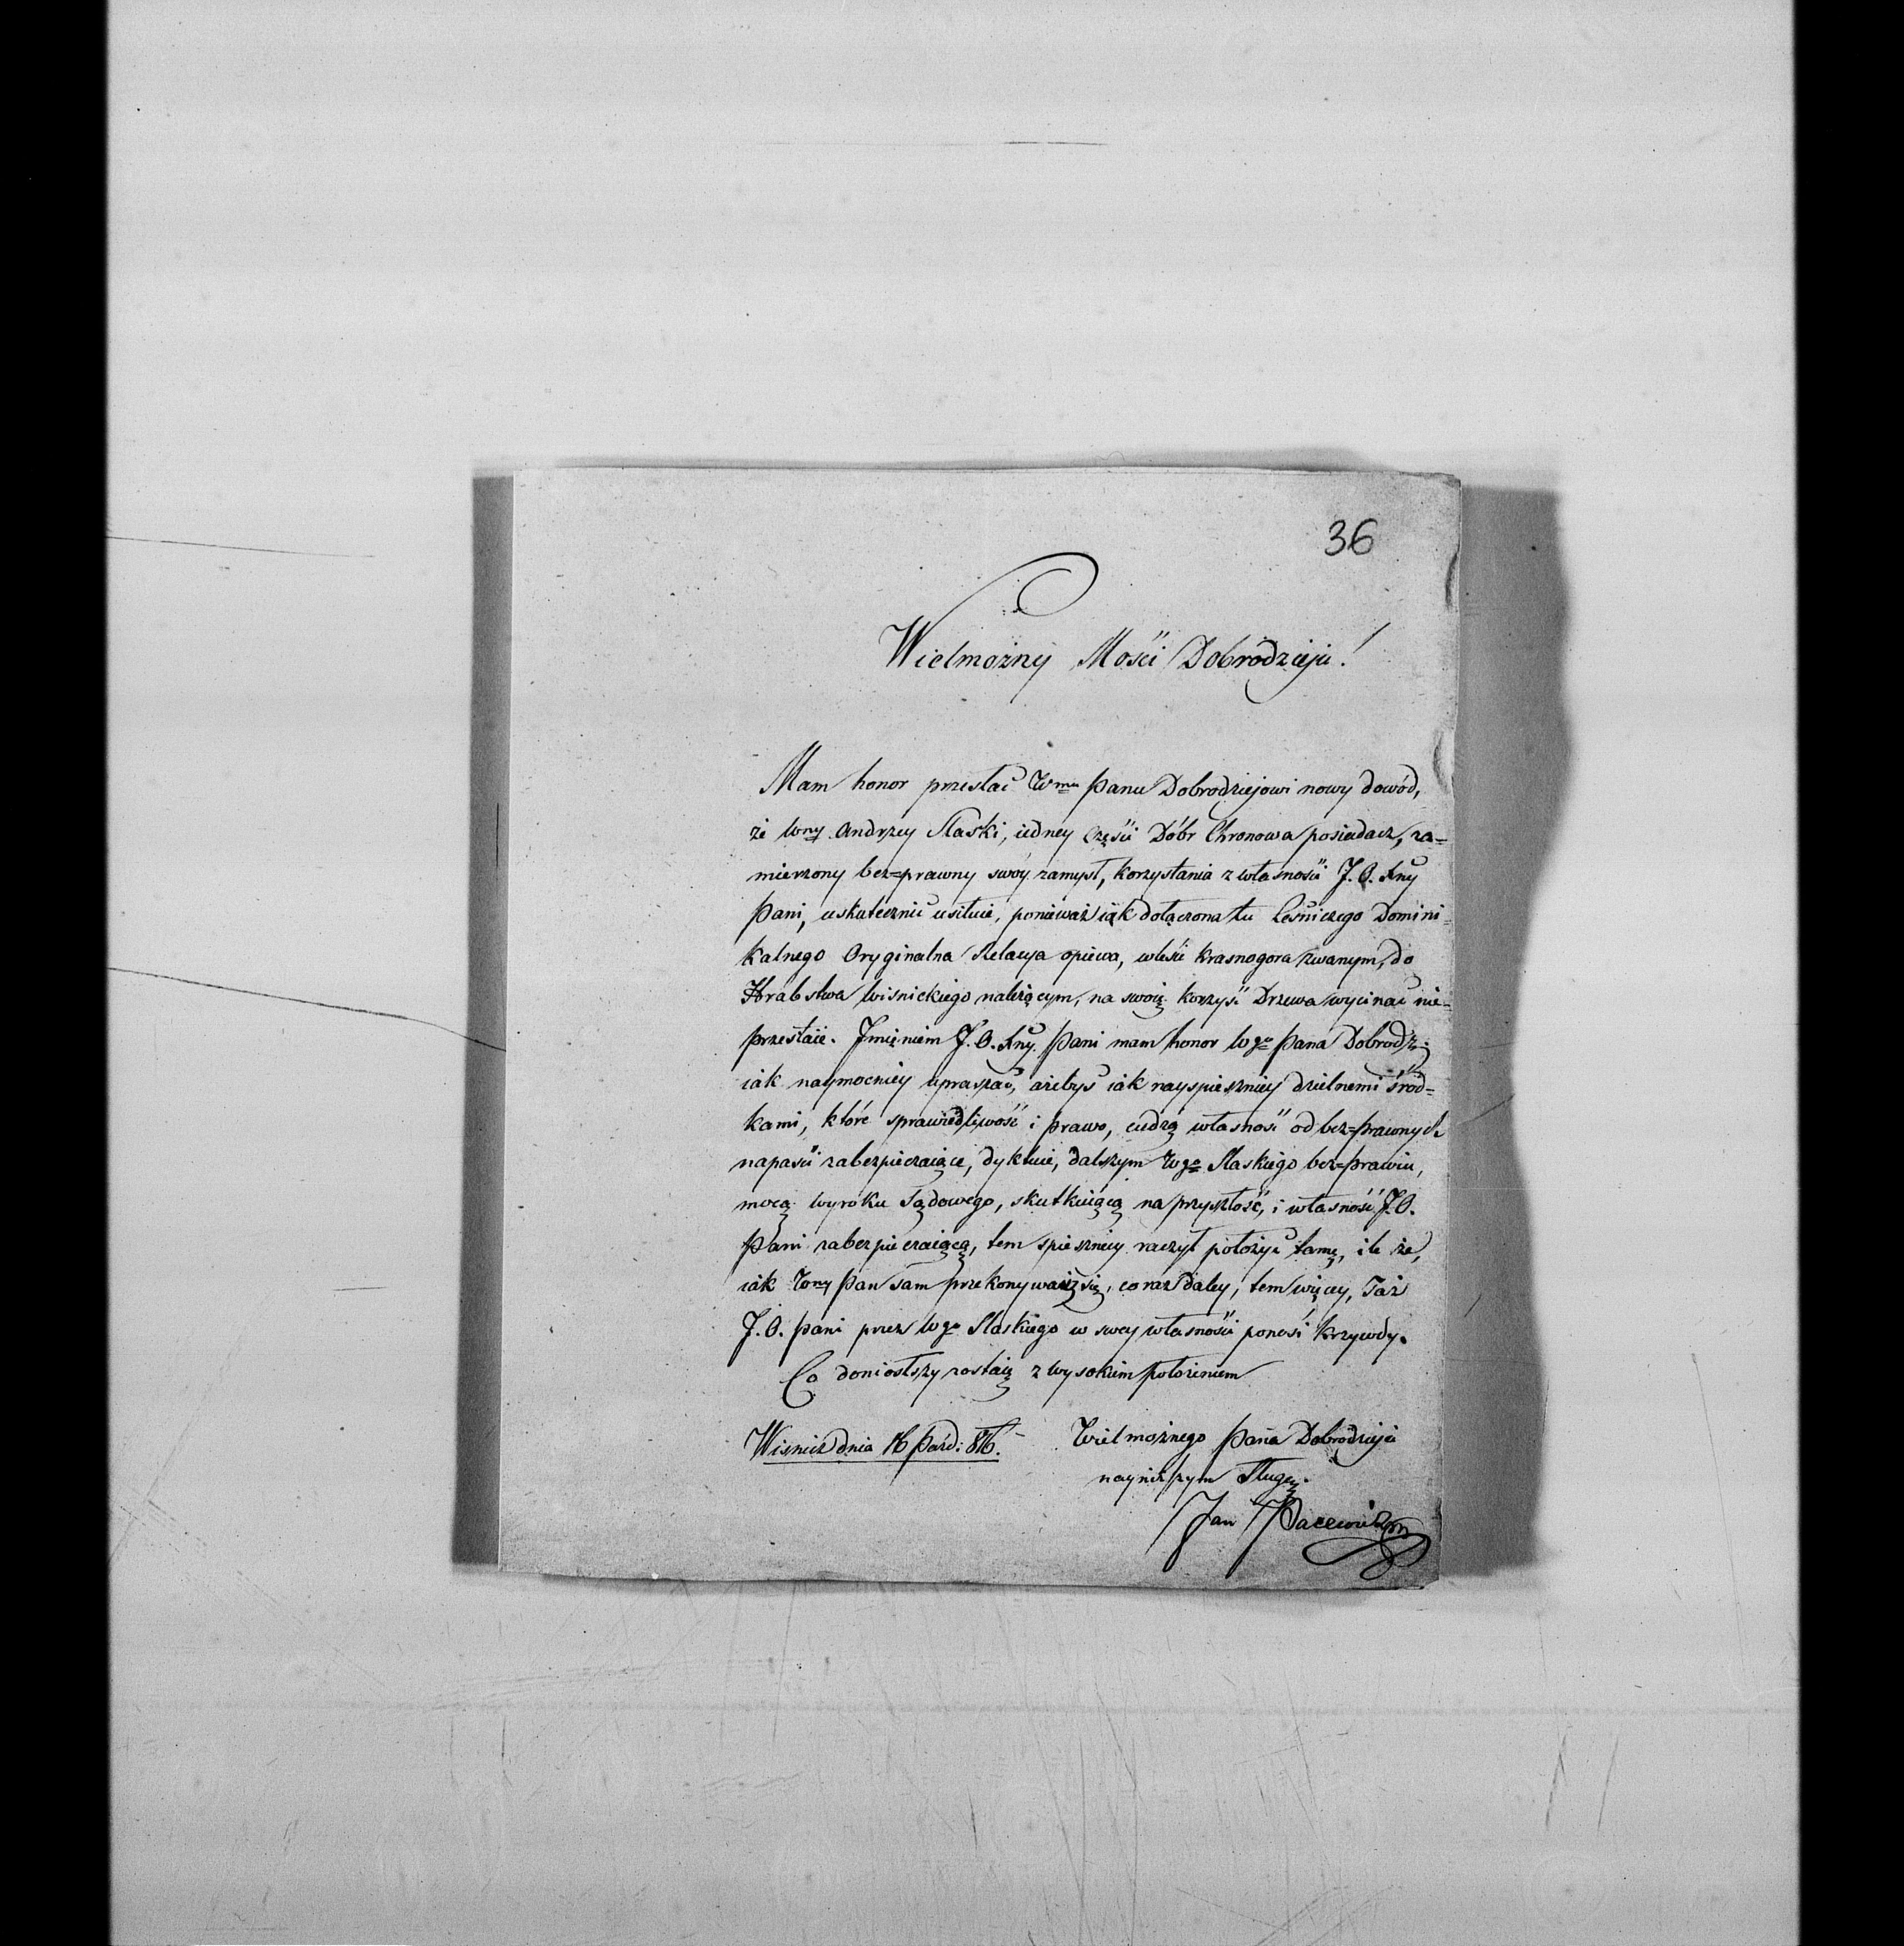 36
Wielmożny Mości Dobrodzieju!
Mam honor przesłać Wmu Panu Dobrodziejowi nowy dowód,
że Wny Andrzey Slaski, iedney Części Dóbr Chronowa posiadacz, za=
mierzony bez=prawny swóy zamysł, korzystania z własności J. O. Xny
Pani, uskutecznić usiłuie, ponieważ iak dołączona tu Leśniczego Domini=
kalnego Oryginalna Relacya opiewa, wlesie Krasnogora zwanym, do
Hrabstwa Wisnickiego należącym, na swoię korzyść Drzewa wycinać nie=
przestaie. Imieniem J. O. Xny Pani mam honor Wgo Pana Dobrodz:
iak naymocniey upraszać, ażebyś iak nayspieszniey dzielnemi środ=
kami, które sprawiedliwość i prawo, cudzą własność od bez=prawnych
napaści zabezpieczaiące, dyktuie, dalszym Wgo Slaskiego bez=prawiu,
mocą wyroku Sądowego, skutkuiącą na przyszłość, i własność J. O.
Pani zabezpieczaiącą, tem spieszniey raczył położyć tamę, ile że,
iak Wny Pan sam przekonywasz się, co raz daley, tem więcey, Taż
J. O. Pani przez Wgo Slaskiego w swey własności ponosi krzywdy.
Co doniosłszy zostaię z wysokiem położeniem
Wisnicz dnia 16 Paźd: 816.
Wielmożnego Pana Dobrodzieja
nayniższym Sługą.
Jan